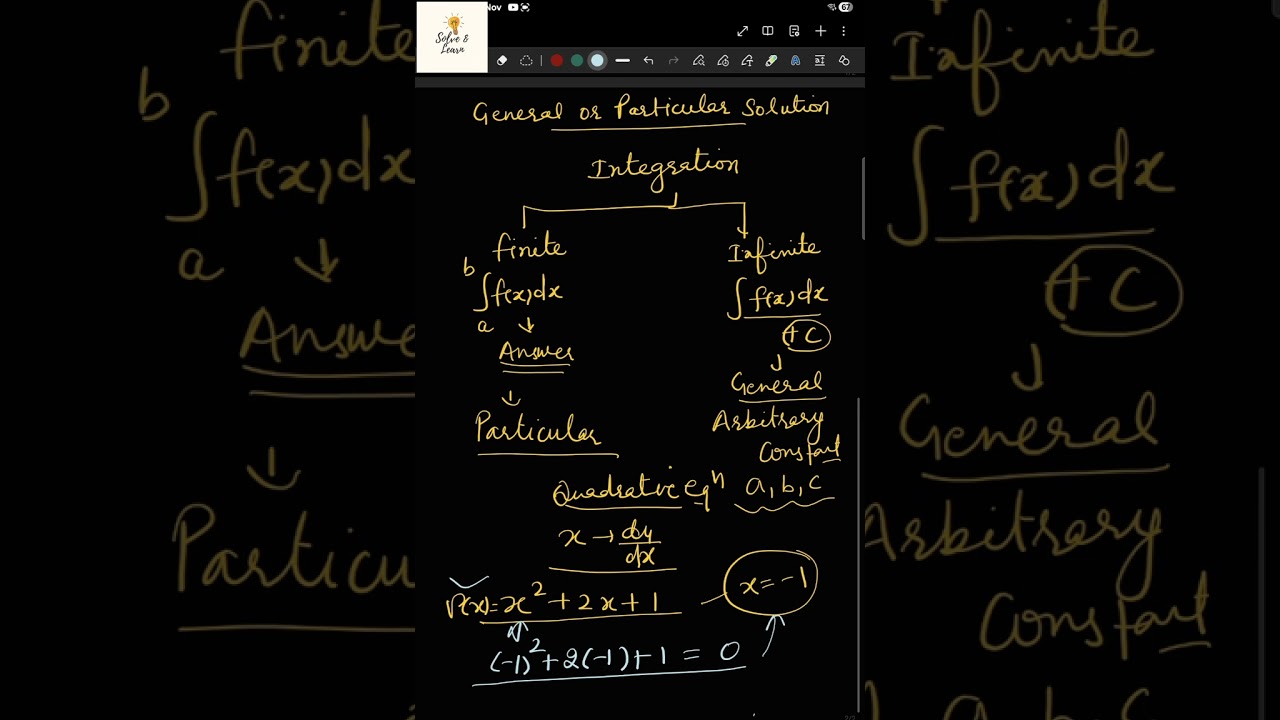 Nov
67
Solve &
Learn
General or Particular Solution
Integration
finite
Infinite
b
∫f(x)dx
a
∫f(x)dx
+C
Answer
General
Particular
Arbitrary
Constant
Quadrative eqⁿ
a, b, c
x → dy/dx
P(x) = x² + 2x + 1
x = -1
(-1)² + 2(-1) + 1 = 0